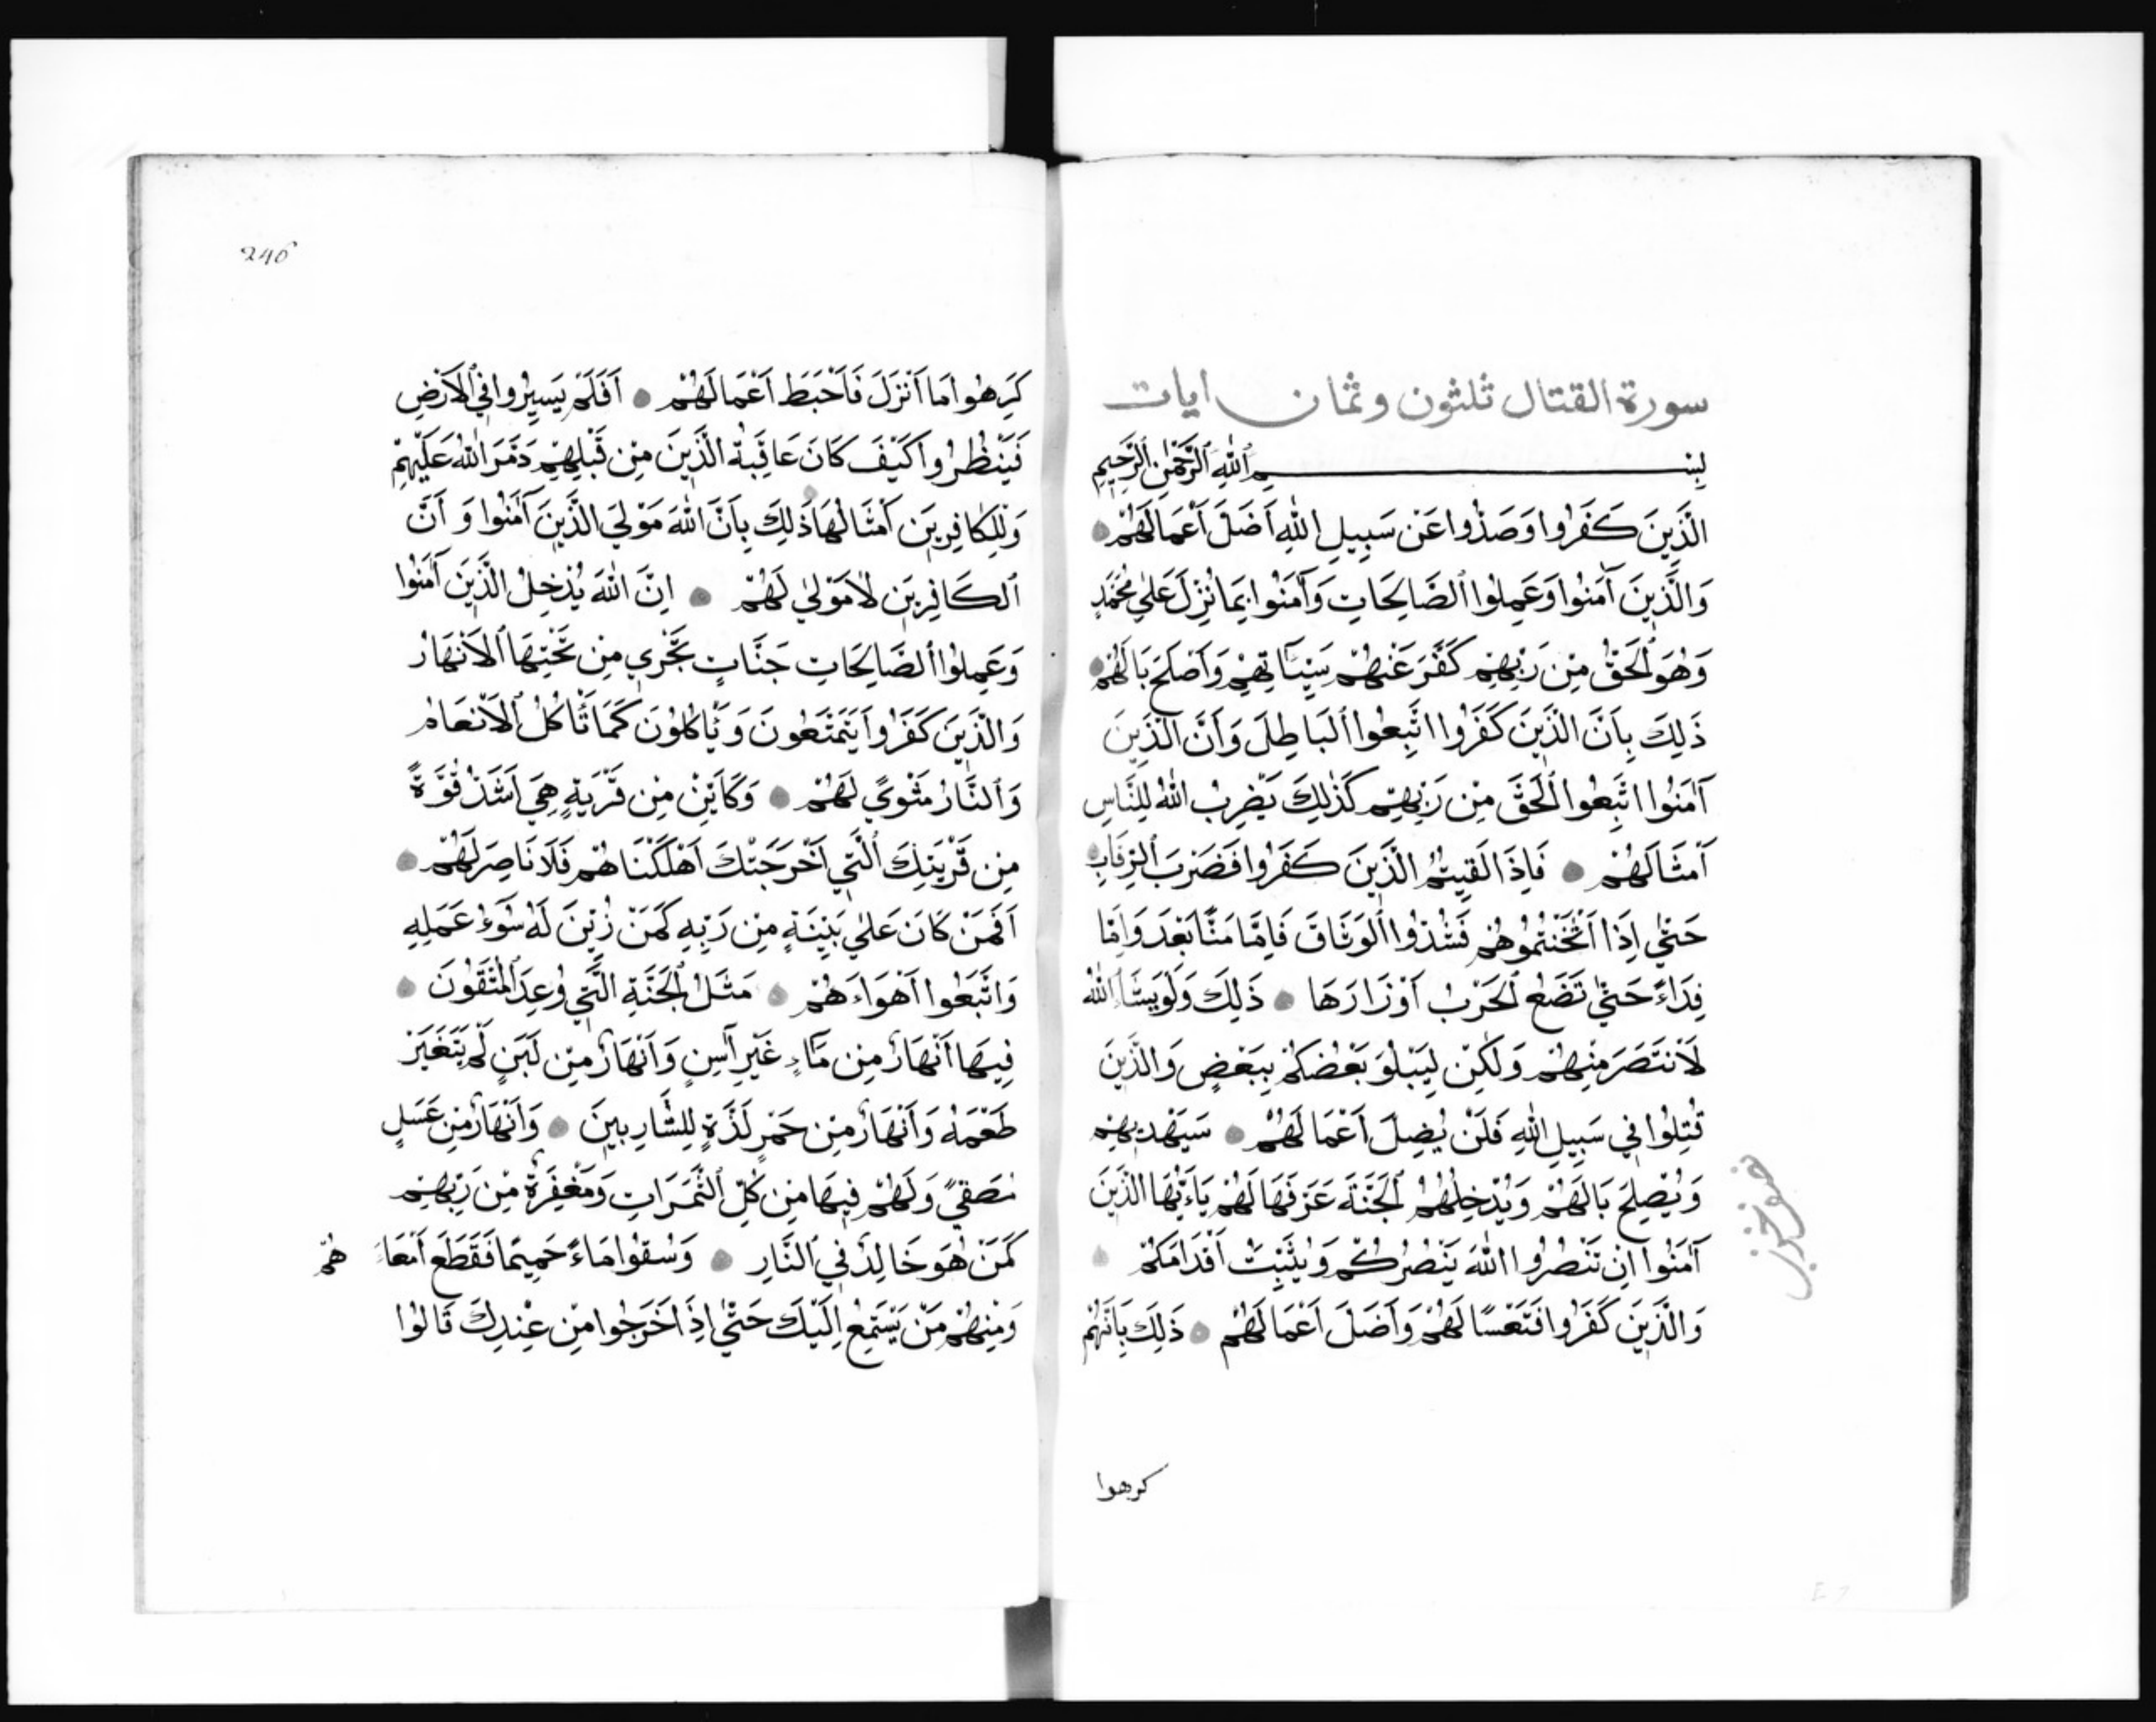 سورة القتال ثلثون وثمان ايات
بِسْمِ ٱللّٰهِ ٱلرَّحْمٰنِ ٱلرَّحِيمِ
الَّذِينَ كَفَرُوا وَصَدُّوا عَنْ سَبِيلِ اللّٰهِ أَضَلَّ أَعْمَالَهُمْ
وَالَّذِينَ آمَنُوا وَعَمِلُوا ٱلصَّالِحَاتِ وَآمَنُوا بِمَا نُزِّلَ عَلٰي مُحَمَّدٍ
وَهُوَ ٱلْحَقُّ مِنْ رَبِّهِمْ كَفَّرَ عَنْهُمْ سَيِّئَاتِهِمْ وَأَصْلَحَ بَالَهُمْ
ذَلِكَ بِأَنَّ الَّذِينَ كَفَرُوا اتَّبِعُوا ٱلبَاطِلَ وَأَنَّ الَّذِينَ
آمَنُوا اتَّبِعُوا ٱلْحَقَّ مِنْ رَبِّهِمْ كَذٰلِكَ يَضْرِبُ اللّٰهُ لِلنَّاسِ
أَمْثَالَهُمْ فَاِذَا لَقِيتُمُ الَّذِينَ كَفَرُوا فَضَرْبَ ٱلرِّقَابِ
حَتّٰي اِذَا أَثْخَنْتُمُوهُمْ فَشُدُّوا ٱلْوَثَاقَ فَاِمَّا مَنًّا بَعْدَ وَاِمَّا
فِدَاءً حَتّٰي تَضَعَ ٱلْحَرْبُ أَوْزَارَهَا ذَلِكَ وَلَوْ يَشَاءُ ٱللّٰهُ
لَانْتَصَرَ مِنْهُمْ وَلٰكِنْ لِيَبْلُوَ بَعْضَكُمْ بِبَعْضٍ وَالَّذِينَ
قُتِلُوا فِي سَبِيلِ اللّٰهِ فَلَنْ يُضِلَّ أَعْمَالَهُمْ سَيَهْدِيهِمْ
وَيُصْلِحُ بَالَهُمْ وَيُدْخِلُهُمُ ٱلْجَنَّةَ عَرَّفَهَا لَهُمْ يَاءَيُّهَا الَّذِينَ
آمَنُوا اِنْ تَنْصُرُوا اللّٰهَ يَنْصُرْكُمْ وَيُثَبِّتْ أَقْدَامَكُمْ
وَالَّذِينَ كَفَرُوا فَتَعْسًا لَهُمْ وَأَضَلَّ أَعْمَالَهُمْ ذَلِكَ بِأَنَّهُمْ
كرهوا
246
كَرِهُوا مَا أَنْزَلَ فَاَحْبَطَ أَعْمَالَهُمْ أَفَلَمْ يَسِيرُوا فِي ٱلْأَرْضِ
فَيَنْظُرُوا كَيْفَ كَانَ عَاقِبَةُ الَّذِينَ مِنْ قَبْلِهِمْ دَمَّرَ اللّٰهُ عَلَيْهِمْ
وَلِلكَافِرِينَ أَمْثَالُهَا ذَلِكَ بِاَنَّ اللّٰهَ مَوْلَي الَّذِينَ آمَنُوا وَ أَنَّ
ٱلكَافِرِينَ لَا مَوْلٰي لَهُمْ اِنَّ اللّٰهَ يُدْخِلُ الَّذِينَ آمَنُوا
وَعَمِلُوا ٱلصَّالِحَاتِ جَنَّاتٍ تَجْرِي مِنْ تَحْتِهَا ٱلْأَنْهَارُ
وَالَّذِينَ كَفَرُوا يَتَمَتَّعُونَ وَيَأْكُلُونَ كَمَا تَأْكُلُ ٱلْأَنْعَامُ
وَٱلنَّارُ مَثْوًي لَهُمْ وَكَأَيِّنْ مِنْ قَرْيَةٍ هِيَ أَشَدُّ قُوَّةً
مِنْ قَرْيَتِكَ ٱلَّتِي أَخْرَجَتْكَ أَهْلَكْنَاهُمْ فَلَا نَاصِرَ لَهُمْ
أَفَمَنْ كَانَ عَلٰي بَيِّنَةٍ مِنْ رَبِّهِ كَمَنْ زُيِّنَ لَهُ سُوءُ عَمَلِهِ
وَاتَّبَعُوا أَهْوَاءَهُمْ مَثَلُ ٱلْجَنَّةِ الَّتِي وُعِدَ ٱلْمُتَّقُونَ
فِيهَا أَنْهَارٌ مِنْ مَاءٍ غَيْرِ آسِنٍ وَأَنْهَارٌ مِنْ لَبَنٍ لَمْ يَتَغَيَّرْ
طَعْمُهُ وَأَنْهَارٌ مِنْ خَمْرٍ لَذَّةٍ لِلشَّارِبِينَ وَأَنْهَارٌ مِنْ عَسَلٍ
مُصَفًّي وَلَهُمْ فِيهَا مِنْ كُلِّ ٱلثَّمَرَاتِ وَمَغْفِرَةٌ مِنْ رَبِّهِمْ
كَمَنْ هُوَ خَالِدٌ فِي ٱلنَّارِ وَسُقُوا مَاءً حَمِيمًا فَقَطَّعَ أَمْعَاءَهُمْ
وَمِنْهُمْ مَنْ يَسْتَمِعُ اِلَيْكَ حَتّٰي اِذَا خَرَجُوا مِنْ عِنْدِكَ قَالُوا